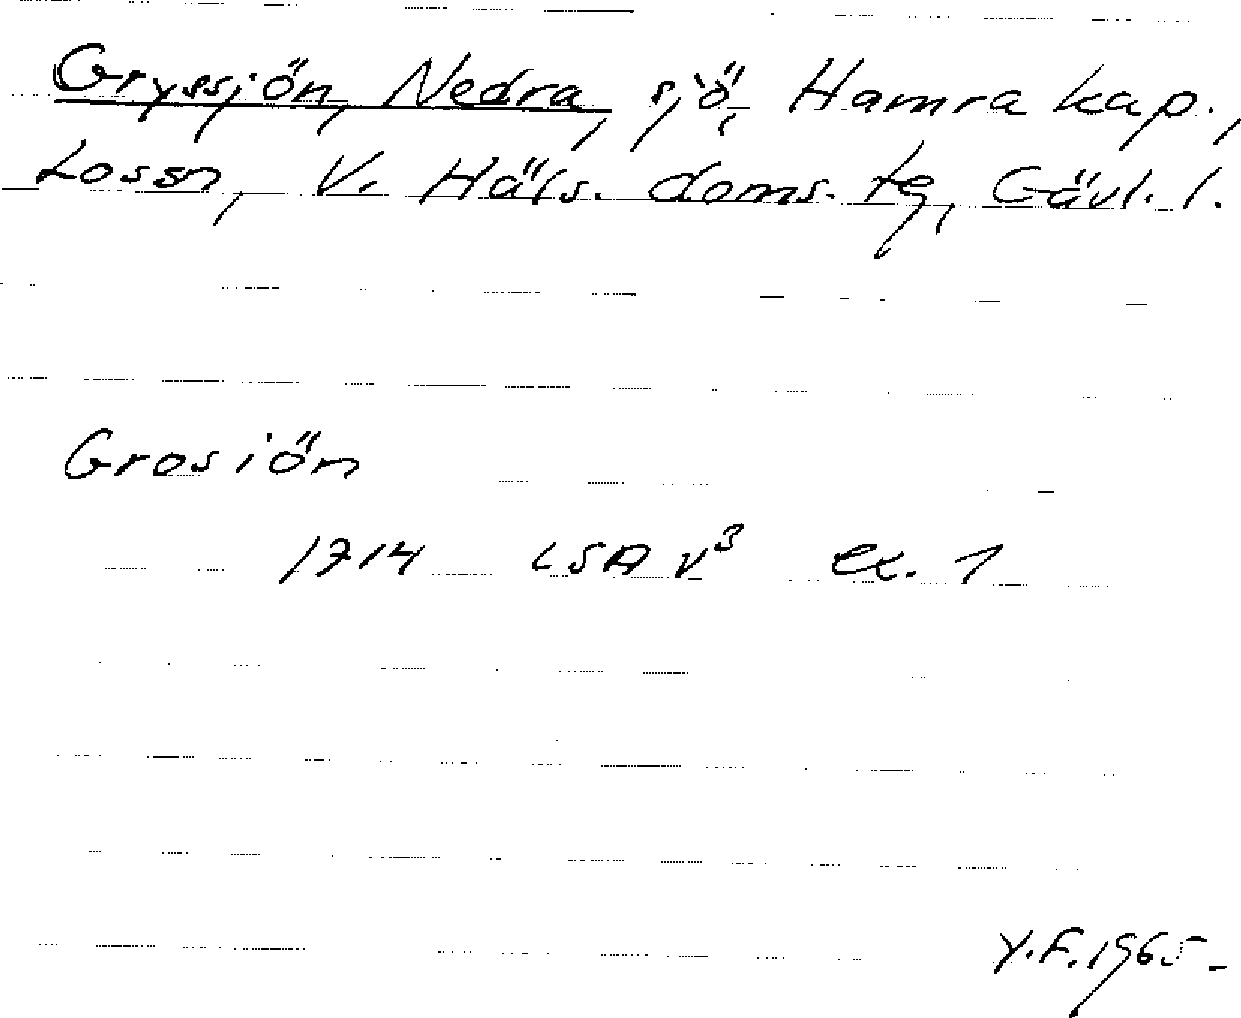 Gryssjön, Nedra, sjö, Hamra kap.,
Lossn, V. Häls. doms. tg, Gävl. l.
Grosiön
1714 LSA v³ ex. 1
Y.F. 1965.